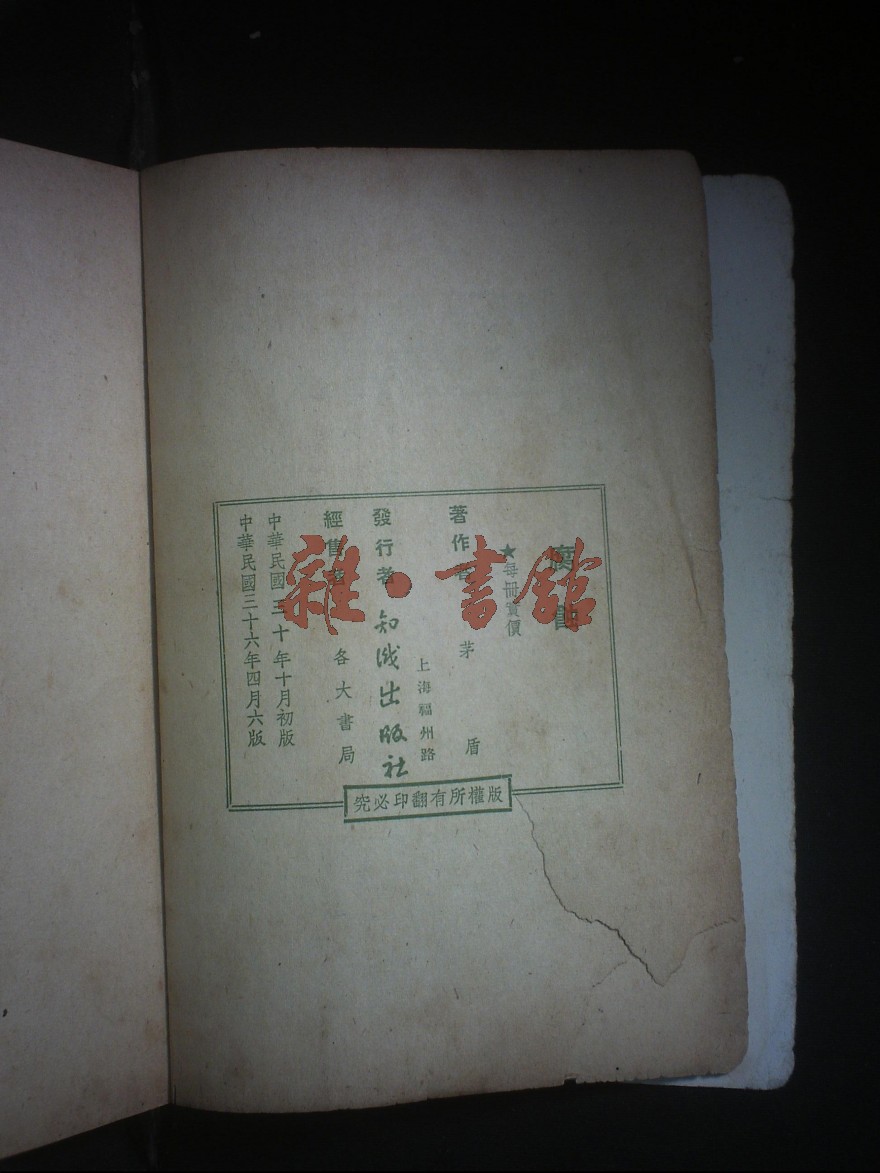 腐蝕
★每冊實價
著作者 茅盾
上海福州路
發行者 知識出版社
經售者 各大書局
中華民國三十年十月初版
中華民國三十六年四月六版
版權所有翻印必究
雜·書館